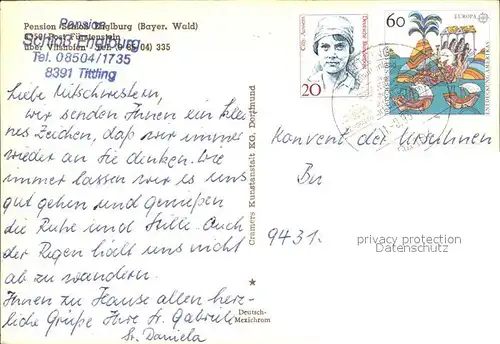 Pension Schloß Englburg (Bayer. Wald)
8391 Post Fürstenstein
über Vilshofen · Tel. (0 85 04) 335
Pension
Schloß Englburg
Tel. 08504/1735
8391 Tittling
Liebe Mitschwestern,
wir senden Ihnen ein klei
nes Zeichen, daß wir immer
wieder an Sie denken. Wie
immer lassen wir es uns
gut gehen und genießen
die Ruhe und Stille. Auch
der Regen hält uns nicht
ab zu wandern.
Ihnen zu Hause allen herz-
liche Grüße Ihre Sr. Gabriele
Sr. Daniela
Cramers Kunstanstalt KG, Dortmund
Deutsch-
Mexichrom
Cilly Aussem
Deutsche Bundespost
20
60
EUROPA
Konvent der Ursulinen
9431.
privacy protection
VEREMBAL.COM